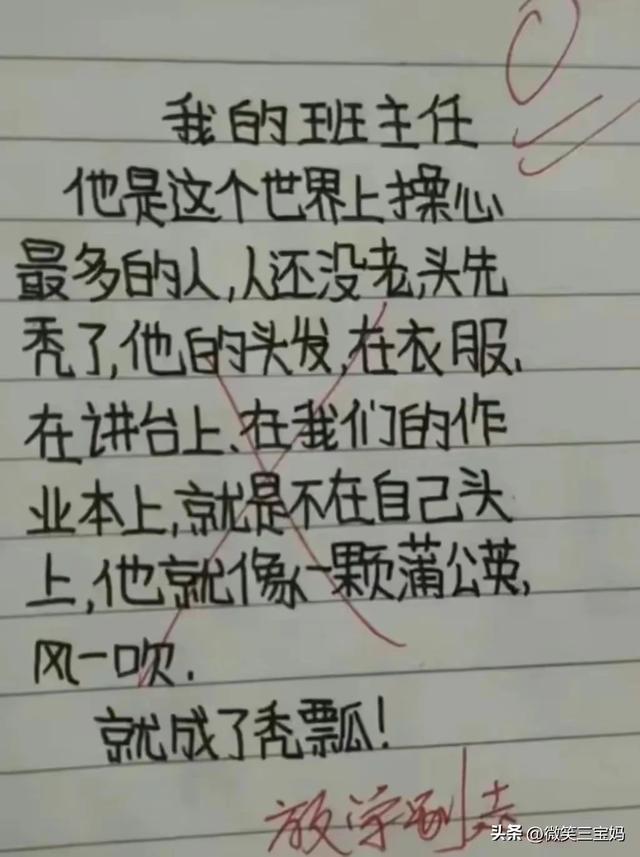 0
我的班主任
他是这个世界上操心
最多的人,人还没老,头先
秃了,他的头发,在衣服、
在讲台上、在我们的作
业本上,就是不在自己头
上,他就像一颗蒲公英,
风一吹.
就成了秃瓢!
放学别走
头条 @微笑三宝妈